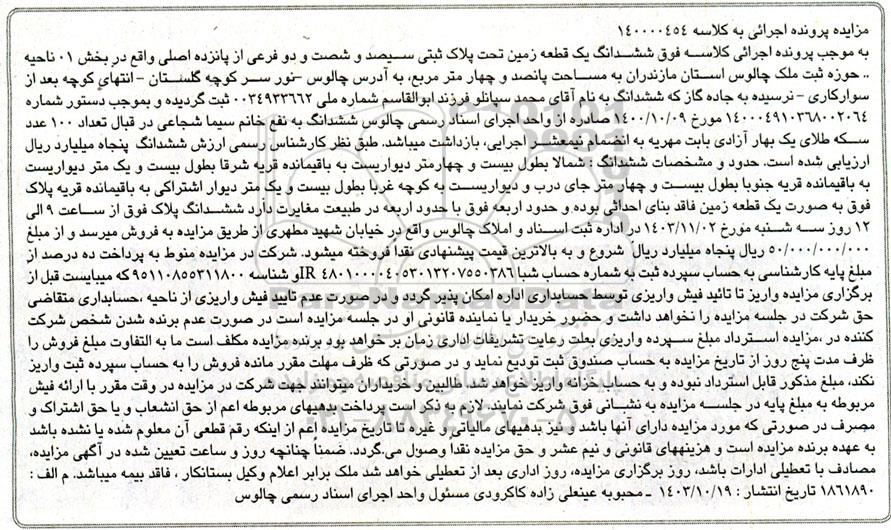 مزایده پرونده اجرائی به کلاسه ۱۴۰۰۰۰۴۵۴
به موجب پرونده اجرائی کلاسه فوق ششدانگ یک قطعه زمین تحت پلاک ثبتی سیصد و شصت و دو فرعی از پانزده اصلی واقع در بخش ۰۱ ناحیه
۰۰ حوزه ثبت ملک چالوس استان مازندران به مساحت پانصد و چهار متر مربع، به آدرس چالوس -نور سر کوچه گلستان -انتهای کوچه بعد از
سوارکاری -نرسیده به جاده گاز که ششدانگ به نام آقای محمد سیانلو فرزند ابوالقاسم شماره ملی ۰۰۳۴۹۳۳۶۶۲ ثبت گردیده و بموجب دستور شماره
۱۴۰۰۰۴۹۱۰۳۶۸۰۰۲۰۶۴ مورخ ۱۴۰۰/۱۰/۰۹ صادره از واحد اجرای اسناد رسمی چالوس ششدانگ به نفع خانم سیما شجاعی در قبال تعداد ۱۰۰ عدد
سکه طلای یک بهار آزادی بابت مهریه به انضمام نیمعشر اجرایی، بازداشت میباشد. طبق نظر کارشناس رسمی ارزش ششدانگ پنجاه میلیارد ریال
ارزیابی شده است. حدود و مشخصات ششدانگ : شمالا بطول بیست و چهارمتر دیواریست به باقیمانده قریه شرقا بطول بیست و یک متر دیواریست
به باقیمانده قریه جنوبا بطول بیست و چهار متر جای درب و دیواریست به کوچه غربا بطول بیست و یک متر دیوار اشتراکی به باقیمانده قریه پلاک
فوق به صورت یک قطعه زمین فاقد بنای احداثی بوده و حدود اربعه فوق با حدود اربعه در طبیعت مغایرت دارد ششدانگ پلاک فوق از ساعت ۹ الی
۱۲ روز سه شنبه مورخ ۱۴۰۳/۱۱/۰۲ در اداره ثبت اسناد و املاک چالوس واقع در خیابان شهید مطهری از طریق مزایده به فروش میرسد و از مبلغ
۵۰/۰۰۰/۰۰۰/۰۰۰ ریال پنجاه میلیارد ریال شروع و به بالاترین قیمت پیشنهادی نقدا فروخته میشود. شرکت در مزایده منوط به پرداخت ده درصد از
مبلغ پایه کارشناسی به حساب سپرده ثبت به شماره حساب شبا IR ۴۸۰۱۰۰۰۰۴۰۵۳۰۱۳۲۰۷۵۵۰۳۸۶و شناسه ۹۵۱۱۰۸۵۵۳۱۱۸۰۰ که میبایست قبل از
برگزاری مزایده واریز تا تائید فیش واریزی توسط حسابداری اداره امکان پذیر گردد و در صورت عدم تایید فیش واریزی از ناحیه ،حسابداری متقاضی
حق شرکت در جلسه مزایده را نخواهد داشت و حضور خریدار یا نماینده قانونی او در جلسه مزایده است در صورت عدم برنده شدن شخص شرکت
کننده در ،مزایده استرداد مبلغ سپرده واریزی بعلت رعایت تشریفات اداری زمان بر خواهد بود برنده مزایده مکلف است ما به التفاوت مبلغ فروش را
ظرف مدت پنج روز از تاریخ مزایده به حساب صندوق ثبت تودیع نماید و در صورتی که ظرف مهلت مقرر مانده فروش را به حساب سپرده ثبت واریز
نکند، مبلغ مذکور قابل استرداد نبوده و به حساب خزانه واریز خواهد شد. طالبین و خریداران میتوانند جهت شرکت در مزایده در وقت مقرر با ارائه فیش
مربوطه به مبلغ پایه در جلسه مزایده به نشانی فوق شرکت نمایند. لازم به ذکر است پرداخت بدهیهای مربوطه اعم از حق انشعاب و یا حق اشتراک و
مصرف در صورتی که مورد مزایده دارای آنها باشد و نیز بدهیهای مالیاتی و غیره تا تاریخ مزایده اعم از اینکه رقم قطعی آن معلوم شده یا نشده باشد
به عهده برنده مزایده است و هزینههای قانونی و نیم عشر و حق مزایده نقدا وصول می‌گردد. ضمناً چنانچه روز و ساعت تعیین شده در آگهی مزایده،
مصادف با تعطیلی ادارات باشد، روز برگزاری مزایده، روز اداری بعد از تعطیلی خواهد شد ملک برابر اعلام وکیل بستانکار ، فاقد بیمه میباشد. م الف :
۱۸۶۱۸۹۰ تاریخ انتشار : ۱۴۰۳/۱۰/۱۹ ـ محبوبه عینعلی زاده کاکرودی مسئول واحد اجرای اسناد رسمی چالوس